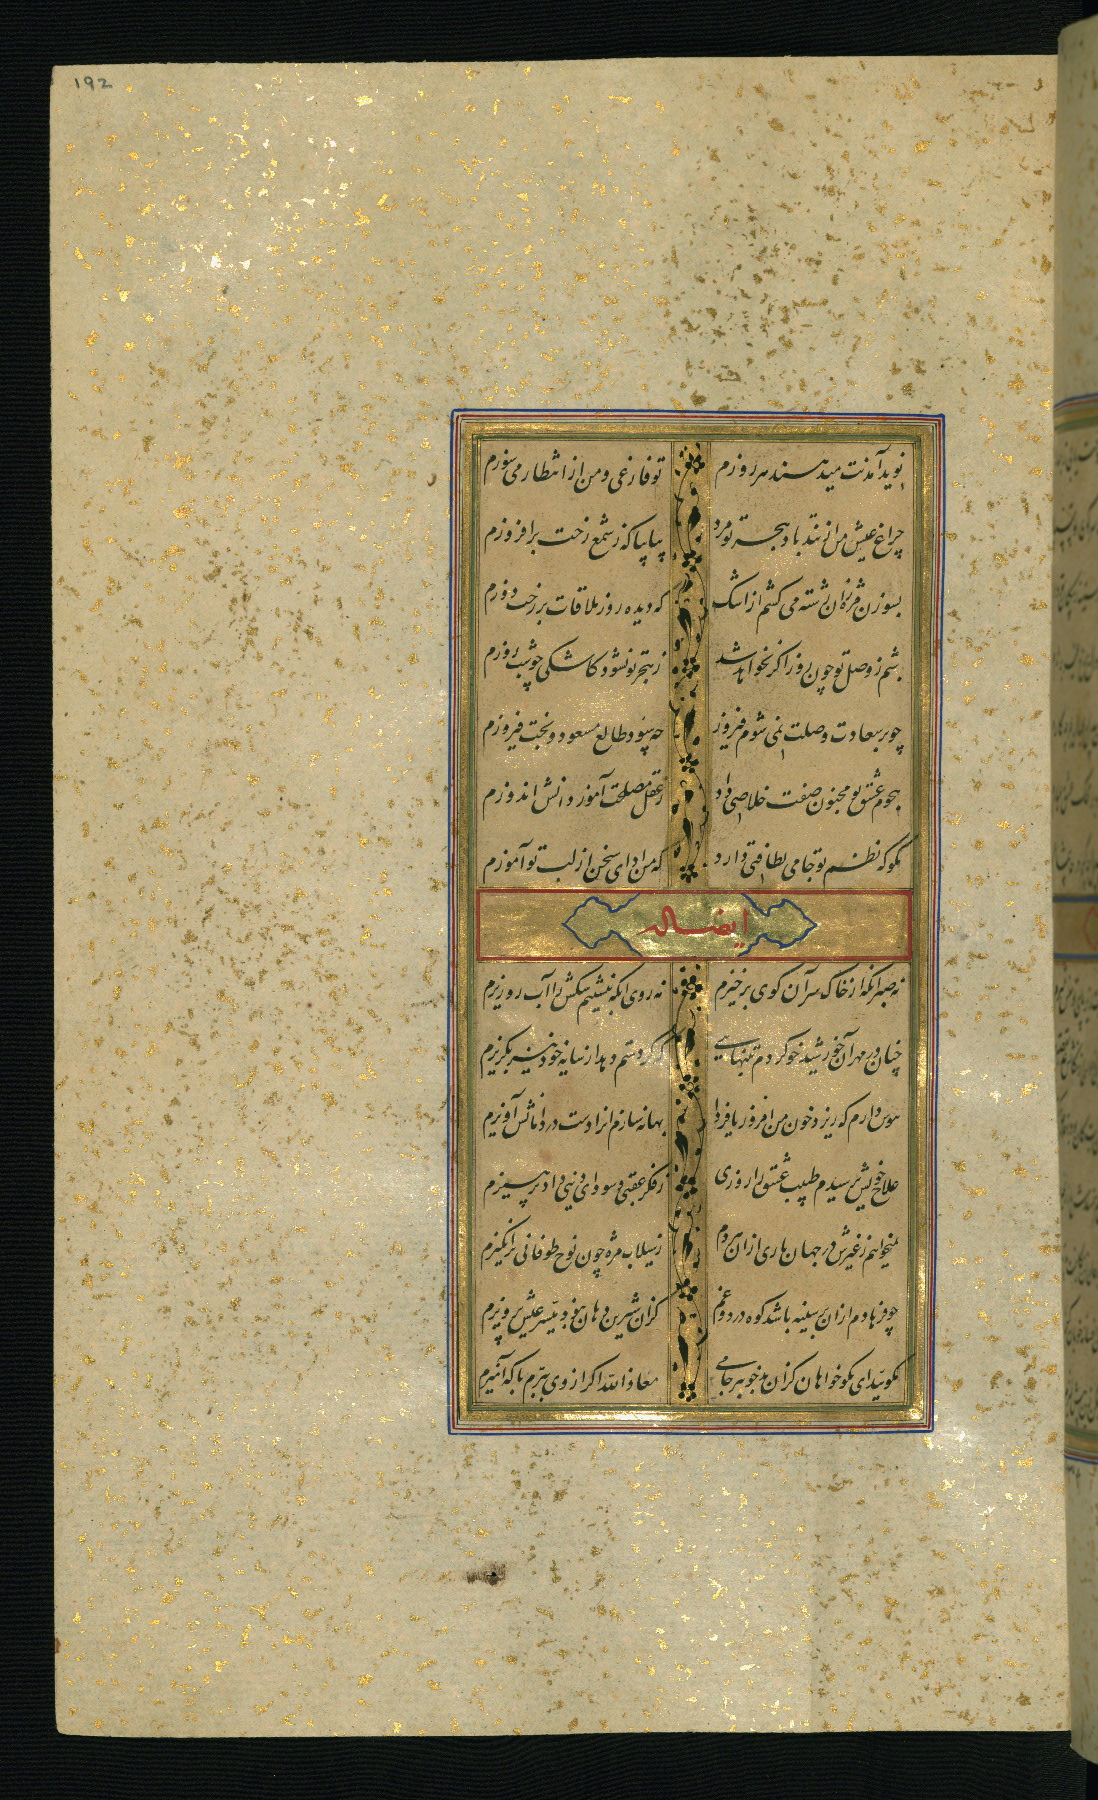 192
نوید آمدنت میدهند هر روزم تو فارغی و من از انتظار می سوزم
چراغ عیش من از تند باد هجر تو مرد بیا بیا که ز شمع رخت برافروزم
بسوزن مژه زان رشته می کشم از اشک که دیده روز ملاقات بر رخت دوزم
شبم ز وصل تو چون روز اگر نخواهد شد ز هجر تو نشود کاشکی چو شب روزم
چو بر سعادت وصلت نمی شوم فیروز چه سود طالع مسعود و بخت فیروزم
هجوم عشق تو مجنون صفت خلاصی داد ز عقل مصلحت آموز دانش اندوزم
مگو که نظم تو جامی لطافتی دارد که من ادای سخن از لب تو آموزم
ایضا له
نه صبر آنکه از خاک سر آن کوی برخیزم نه روی آنکه بنشینم سکش را آب رو ریزم
چنان در مهر آن خورشید خو کردم بتنهایی که گر دستم دهد از سایه خود نیز بگریزم
هوس دارم که ریزد خون من امروز یا فردا بهانه سازم آنرا دست در دامانش آویزم
علاج خویش پرسیدم طبیب عشق را روزی ز فکر عقبی و سودای دنیی داد پرهیزم
نمیخواهم ز غیرش در جهان هاری از آن هر دم ز سیلاب مژه چون نوح طوفانی برانگیزم
چو فرهادم از آن بر سینه باشد کوه درد و غم کز آن شیرین دهان نبود میسر عیش پرویزم
مگویید ای نکوخواهان کزان بدخو ببر جامی معاذ الله اگر از وی ببرم با که آمیزم